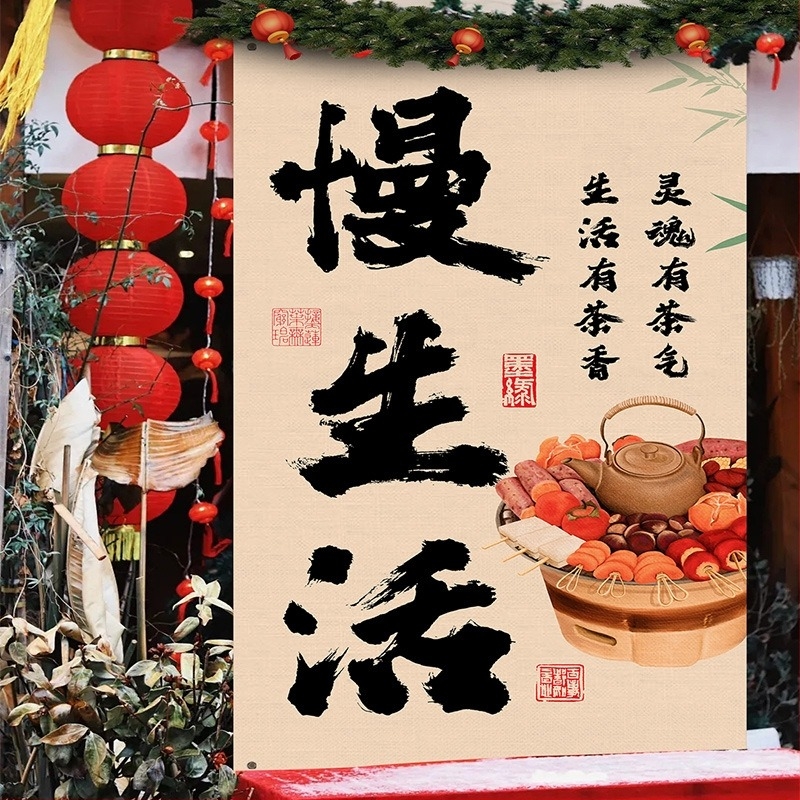 慢生活
灵魂有茶气
生活有茶香
墨缘